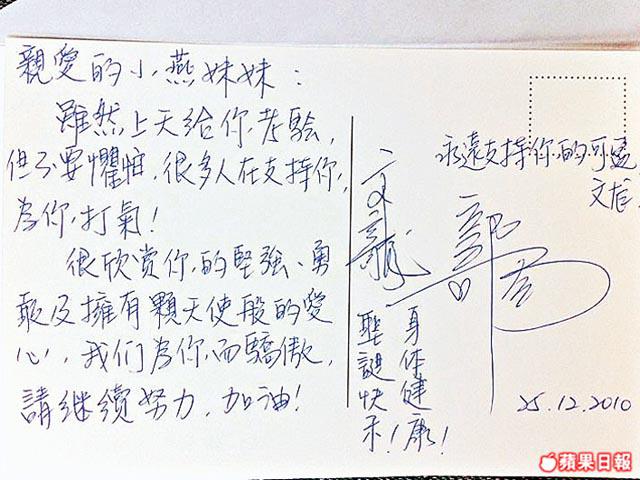 親愛的小燕妹妹：
雖然上天給你考驗，
但不要懼怕，很多人在支持你，
為你打氣！
很欣賞你的堅強、勇
敢及擁有顆天使般的愛
心，我们為你而驕傲，
請继續努力，加油！
永遠支持你的可愛
文龙
文龍
郭
聖誕快樂！
身体健康！
25.12.2010
蘋果日報